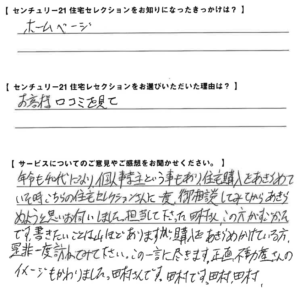 【 センチュリー21 住宅セレクションをお知りになったきっかけは？ 】
ホームページ
【 センチュリー21 住宅レセクションをお選びいただいた理由は？ 】
お客様口コミを見て
【 サービスについてのご意見やご感想をお聞かせください。 】
年令も40代になり、個人事業主という事もあり住宅購入をあきらめて
いる時こちらの住宅セレクションさんに一度、御相談してみてからあきら
めようと思いお伺いしました。担当して下さった田村さん、この方がむちゃ
です。書きたいことは山ほどありますが購入をあきらめかけている方、
是非一度訪ねてみて下さい。この一言に尽きます。正直不動産屋さんの
イメージもかわりました。田村さんです。田村です。田村、田村、